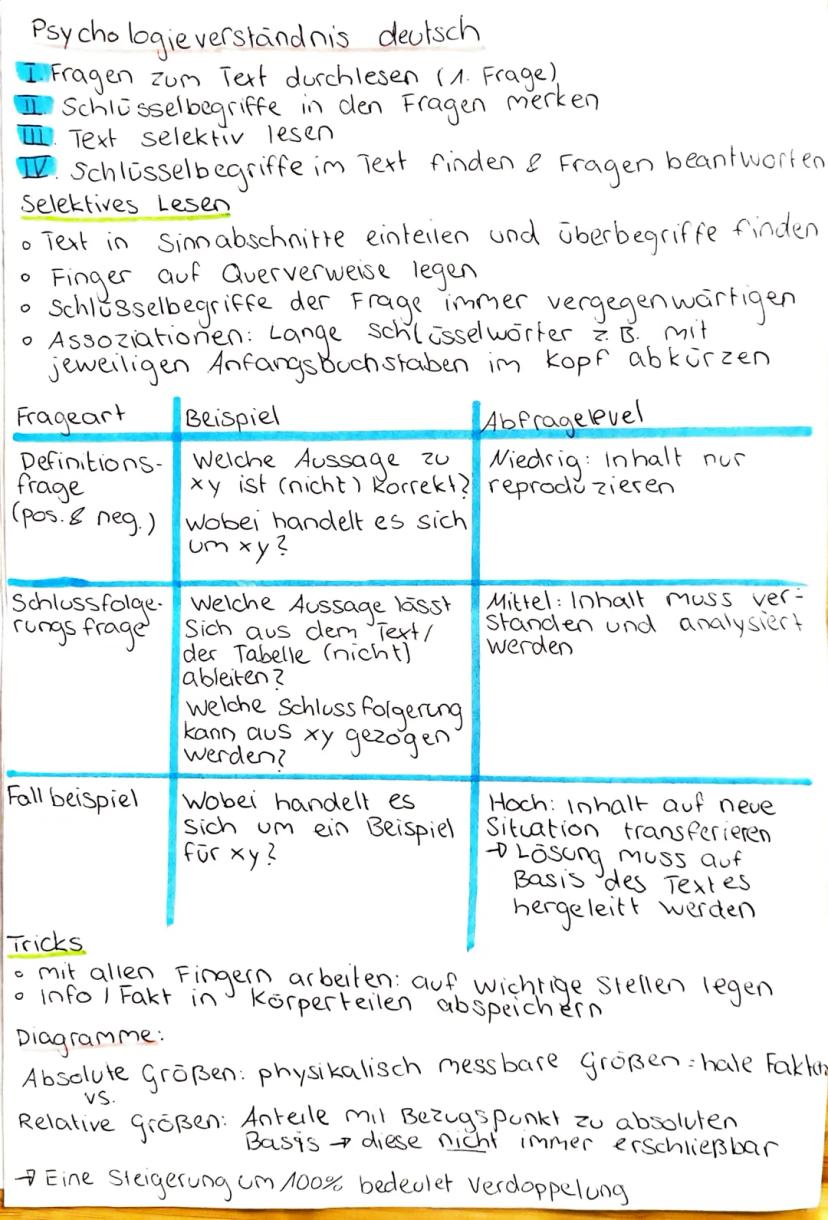 Psychologieverständnis deutsch
I. Fragen zum Text durchlesen (1. Frage)
II. Schlüsselbegriffe in den Fragen merken
III. Text selektiv lesen
IV. Schlüsselbegriffe im Text finden & Fragen beantworten
Selektives Lesen
o Text in Sinnabschnitte einteilen und überbegriffe finden
o Finger auf Querverweise legen
o Schlüsselbegriffe der Frage immer vergegenwärtigen
o Assoziationen: Lange Schlüsselwörter z.B. mit
jeweiligen Anfangsbuchstaben im Kopf abkürzen
Frageart
Beispiel
Abfragelevel
Definitions-
frage
(pos. & neg.)
Welche Aussage zu
xy ist (nicht) korrekt?
Wobei handelt es sich
um xy?
Niedrig: Inhalt nur
reproduzieren
Schlussfolge-
rungsfrage
Welche Aussage lässt
Sich aus dem Text/
der Tabelle (nicht)
ableiten?
Welche Schlussfolgerung
kann aus xy gezogen
werden?
Mittel: Inhalt muss ver-
standen und analysiert
werden
Fallbeispiel
Wobei handelt es
sich um ein Beispiel
für xy?
Hoch: Inhalt auf neue
Situation transferieren
→ Lösung muss auf
Basis des Textes
hergeleitt werden
Tricks
o mit allen Fingern arbeiten: auf wichtige Stellen legen
o Info / Fakt in Körperteilen abspeichern
Diagramme:
Absolute Größen: physikalisch messbare Größen: hale Fakten
vs.
Relative größen: Anteile mit Bezugspunkt zu absoluten
Basis → diese nicht immer erschließbar
→ Eine Steigerung um 100% bedeutet Verdoppelung